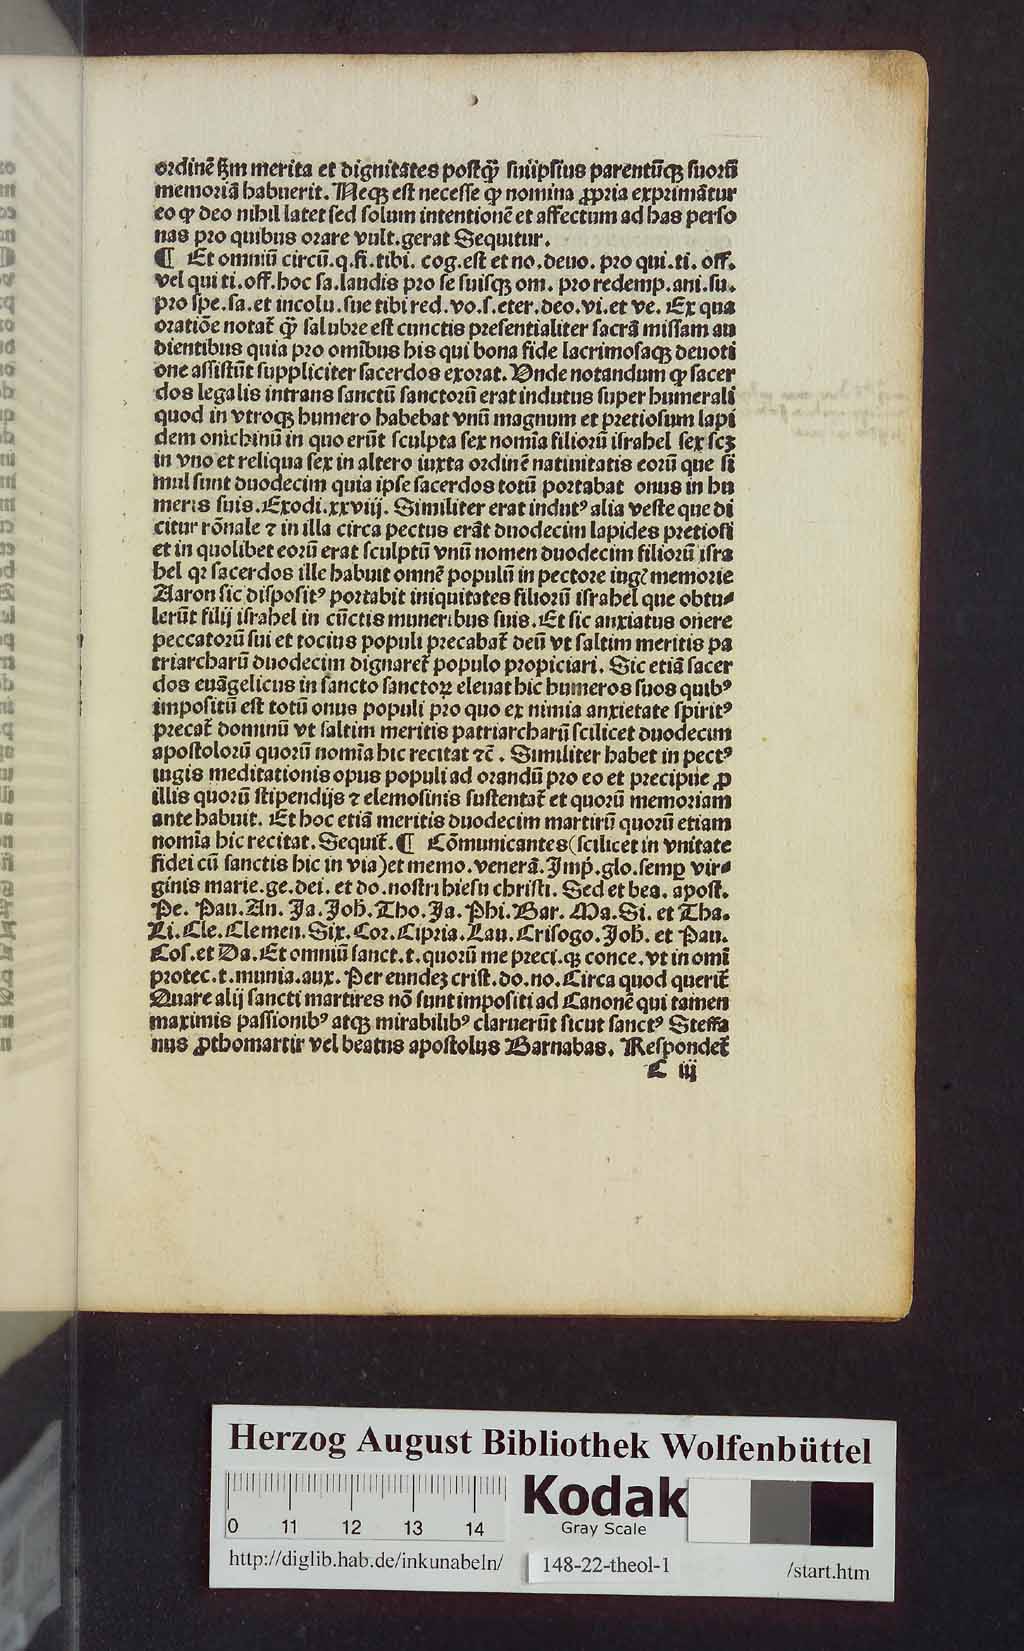 ordinē ẜm merita et dignitates postꝙ̄ suiipsius parentūqꝫ suorū
memoriā habuerit. Neqꝫ est necesse ꝙ nomina ꝓpria exprimātur
eo ꝙ deo nihil latet sed solum intentionē et affectum ad has perso
nas pro quibus orare vult.gerat Sequitur.
¶ Et omniū circū.q.fi.tibi. cog.est et no.deuo. pro qui.ti. off.
vel qui ti.off.hoc sa.laudis pro se suisqꝫ om. pro redemp.ani.su.
pro spe.sa.et incolu.sue tibi red.vo.s.eter.deo.vi.et ve. Ex qua
oratiōe notat̄ ꝙ̄ salubre est cunctis presentialiter sacrā missam au
dientibus quia pro omībus his qui bona fide lacrimosaqꝫ deuoti
one assistūt suppliciter sacerdos exorat. Unde notandum ꝙ sacer
dos legalis intrans sanctū sanctorū erat indutus super humerali
quod in vtroqꝫ humero habebat vnū magnum et pretiosum lapi
dem onichinū in quo erūt sculpta sex nomīa filiorū israhel sex scꝫ
in vno et reliqua sex in altero iuxta ordinē natiuitatis eorū que si
mul sunt duodecim quia ipse sacerdos totū portabat onus in hu
meris suis.Exodi.xxviij. Similiter erat indutꝰ alia veste que di
citur rōnale ⁊ in illa circa pectus erāt duodecim lapides pretiosi
et in quolibet eorū erat sculptū vnū nomen duodecim filiorū isra
hel qꝛ sacerdos ille habuit omnē populū in pectore iugꝭ memorie
Aaron sic dispositꝰ portabit iniquitates filiorū israhel que obtu⸗
lerūt filij israhel in cūctis muneribus suis.Et sic anxiatus onere
peccatorū sui et tocius populi precabat̄ deū vt saltim meritis pa
triarcharū duodecim dignaret̄ populo propiciari. Sic etiā sacer
dos euāgelicus in sancto sanctoꝝ eleuat hic humeros suos quibꝰ
impositū est totū onus populi pro quo ex nimia anxietate spiritꝰ
precat̄ dominū vt saltim meritis patriarcharū scilicet duodecim
apostolorū quorū nomīa hic recitat ⁊c̄ . Similiter habet in pectꝰ
iugis meditationis opus populi ad orandū pro eo et precipue ꝓ
illis quorū stipendijs ⁊ elemosinis sustentat̄ et quorū memoriam
ante habuit. Et hoc etiā meritis duodecim martirū quorū etiam
nomīa hic recitat. Sequit̄. ¶ Cōmunicantes(scilicet in vnitate
fidei cū sanctis hic in via)et memo.venerā. Imp̄.glo.semꝑ vir⸗
ginis marie.ge.dei. et do.nostri hiesu christi. Sed et bea. apost.
Pe. Pau.An. Ja.Joh̄.Tho.Ja.Phi.Bar. Ma.Si. et Tha.
Li.Cle.Clemen.Six.Cor.Cipria.Lau.Crisogo.Joh̄. et Pau.
Cos.et Da.Et omniū sanct.t.quorū me preci.qꝫ conce.vt in omī
protec.t.munia.aux. Per eundeꝫ crist.do.no.Circa quod querit̄
Quare alij sancti martires nō sunt impositi ad Canonē qui tamen
maximis passionibꝰ atqꝫ mirabilibꝰ claruerūt sicut sanctꝰ Steffa
nus ꝓthomartir vel beatus apostolus Barnabas. Respondet̄
C iij
Herzog August Bibliothek Wolfenbüttel
0 11 12 13 14
Kodak
Gray Scale
http://diglib.hab.de/inkunabeln/ 148-22-theol-1 /start.htm